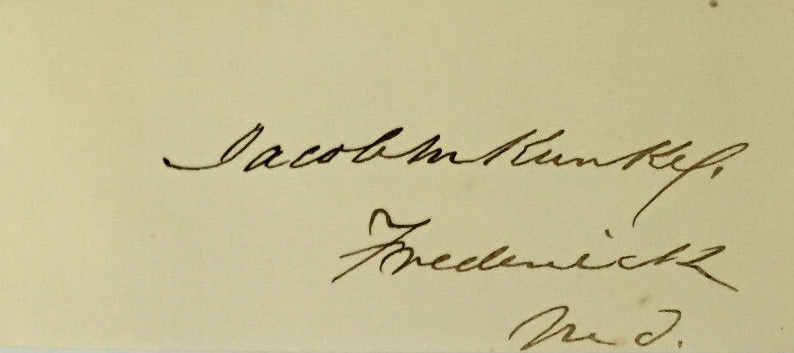 Jacob M Kunkel.
Frederick
Md.